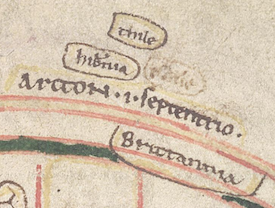 thile
hibnia
Arctoa .i. septentrio.
Brittannia